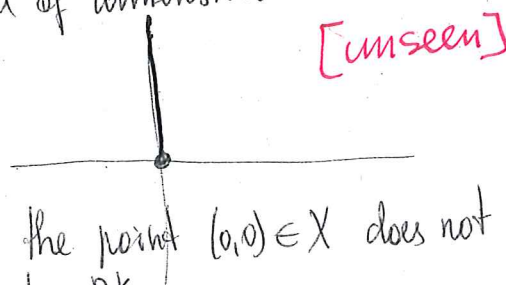 of
[unseen]
the point (0,0) ∈ X does not